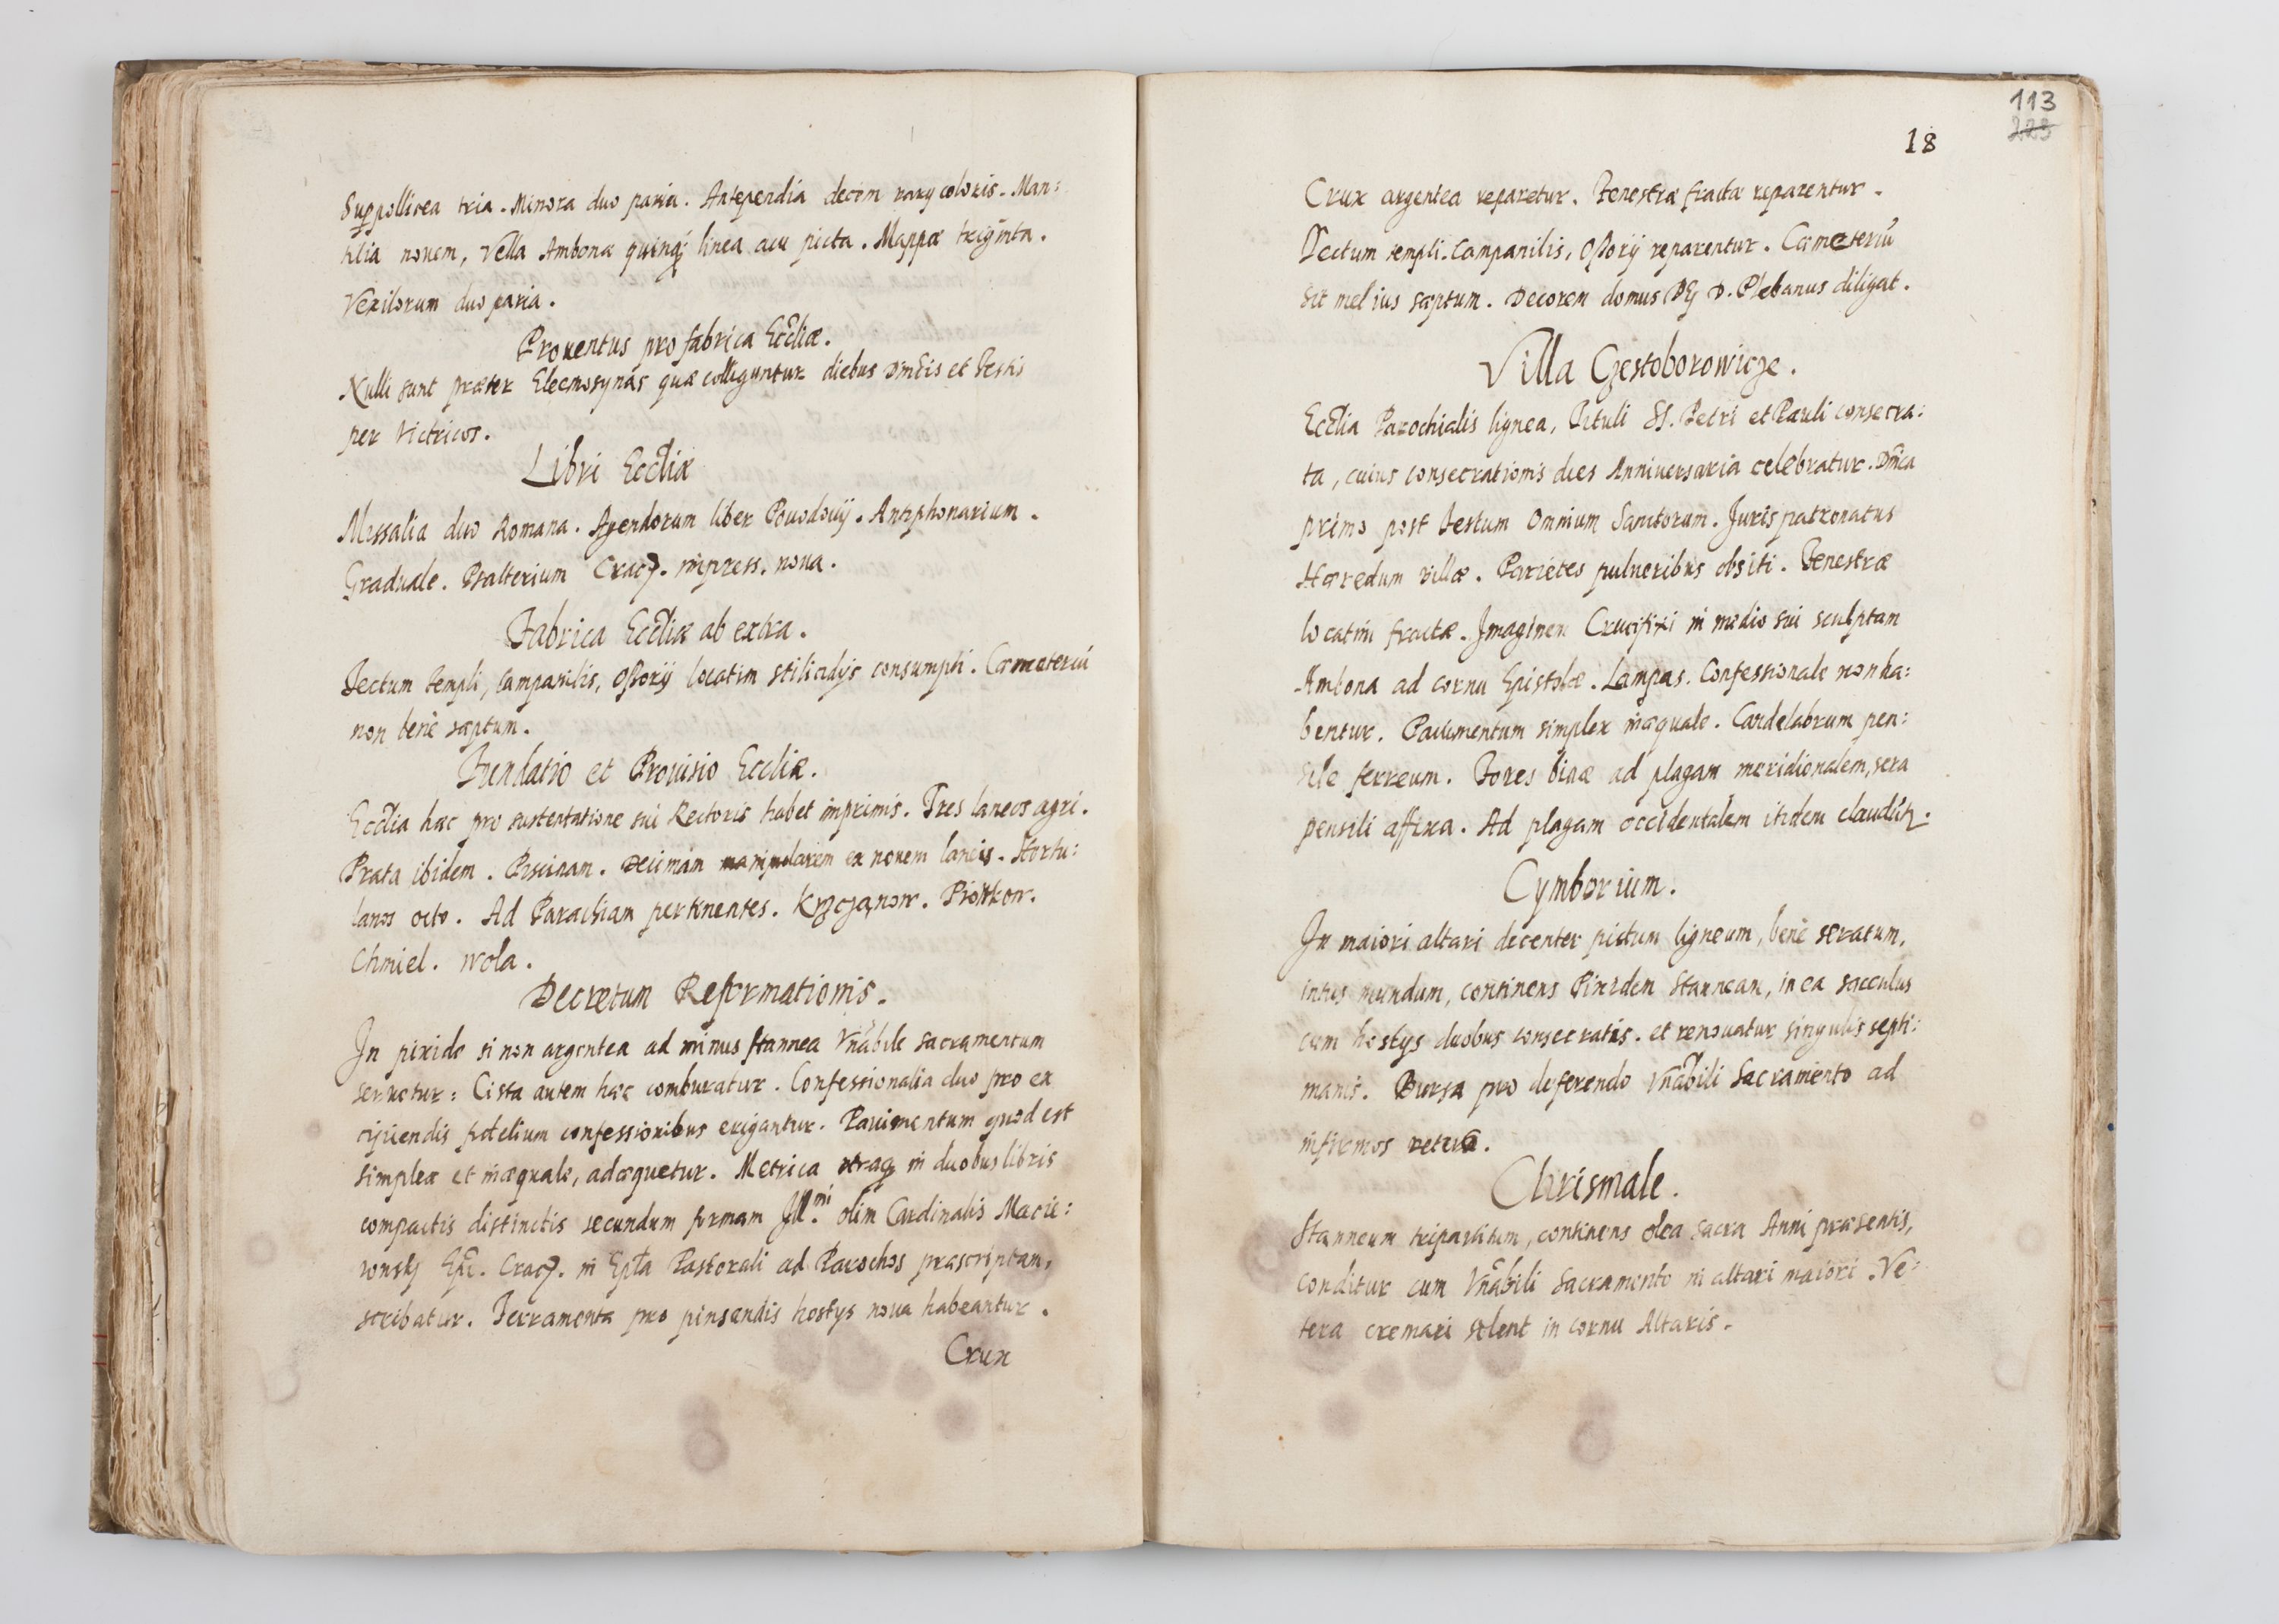 Suppollicea tria. Minora duo paria. Antependia decem varij coloris. Man:
tilia novem, Vella Ambonæ quinq; linea acu picta. Mappæ triginta.
Vexilorum duo paria.
Proventus pro fabrica Eccłiæ.
Nulli sunt præter Eleemosynas quæ colliguntur diebus Dnĩcis et Festis
per Victricos.
Libri Eccłiæ
Missalia duo Romana. Agendorum liber Povodovij. Antiphonarium.
Graduale. Psalterium Crac. impress. nova.
Fabrica Eccłiæ ab extra.
Tectum templi, Campanilis, Ossorij locatim stilicidijs consumpti. Cæmeteriũ
non benè sæptum.
Fundatio et Provisio Eccliæ.
Eccłia hæc pro sustentatione sui Rectoris habet imprimis. Tres laneos agri.
Prata ibidem. Piscinam. Decimam manipularem ex novem laneis. Hortu:
lanos octo. Ad Parachiam pertinentes. Krzczanow. Piotrkow.
Chmiel. Wola.
Decretum Reformationis.
In pixide si non argentea ad minus stannea Vnãbile Sacramentum
servetur: Cista autem hæc comburatur. Confessionalia duo pro ex
cipiendis fidelium confessionibus erigantur. Pavimentum quod est
simplex et inæquale, adæquetur. Metrica utraq in duobus libris
compactis distinctis secundum formam Ill.mi olim Cardinalis Macie:
ionskj Epĩ. Crac. in Epła Pastorali ad Parochos præscriptam,
scribatur. Ferramenta pro pinsendis hostijs nova habeantur.
Crux
113
223
18
Crux argentea reparetur. Fenestræ fractæ reparentur.
Tectum templi. Campanilis, Ossorij reparentur. Cæmeteriũ
sit melius sæptum. Decorem domus DEI D. Plebanus diligat.
Villa Czestoborowicze.
Eccłia Parochialis lignea, Tituli SS. Petri et Pauli consecra:
ta, cuius consecrationis dies Anniversaria celebratur. Dnĩca
primo post Festum Omnium Sanctorum. Juris patronatus
Hæredum villæ. Parietes pulveribus obsiti. Fenestræ
locatim fractæ. Imaginem Crucifixi in medio sui sculptam
Ambona ad cornu Epistolæ. Lampas. Confessionale non ha:
bentur. Pavimentum simplex inæquale. Candelabrum pen:
sile ferreum. Fores binæ ad plagam meridionalem, sera
pensili affixa. Ad plagam occidentalem itidem claudũtr.
Cymborium.
In maiori altari decenter pictum ligneum, benè seratum,
intus mundum, continens Pixidem stanneam, in ea sacculus
cum hostijs duobus consecratis. et renovatur singulis septi:
manis. Bursa pro deferendo Vnãbili Sacramento ad
infirmos vetera.
Chrismale.
Stanneum tripartitum, continens olea sacra Anni præsentis,
conditur cum Vnãbili Sacramento in altari maiori. Ve:
tera cremari solent in cornu Altaris.